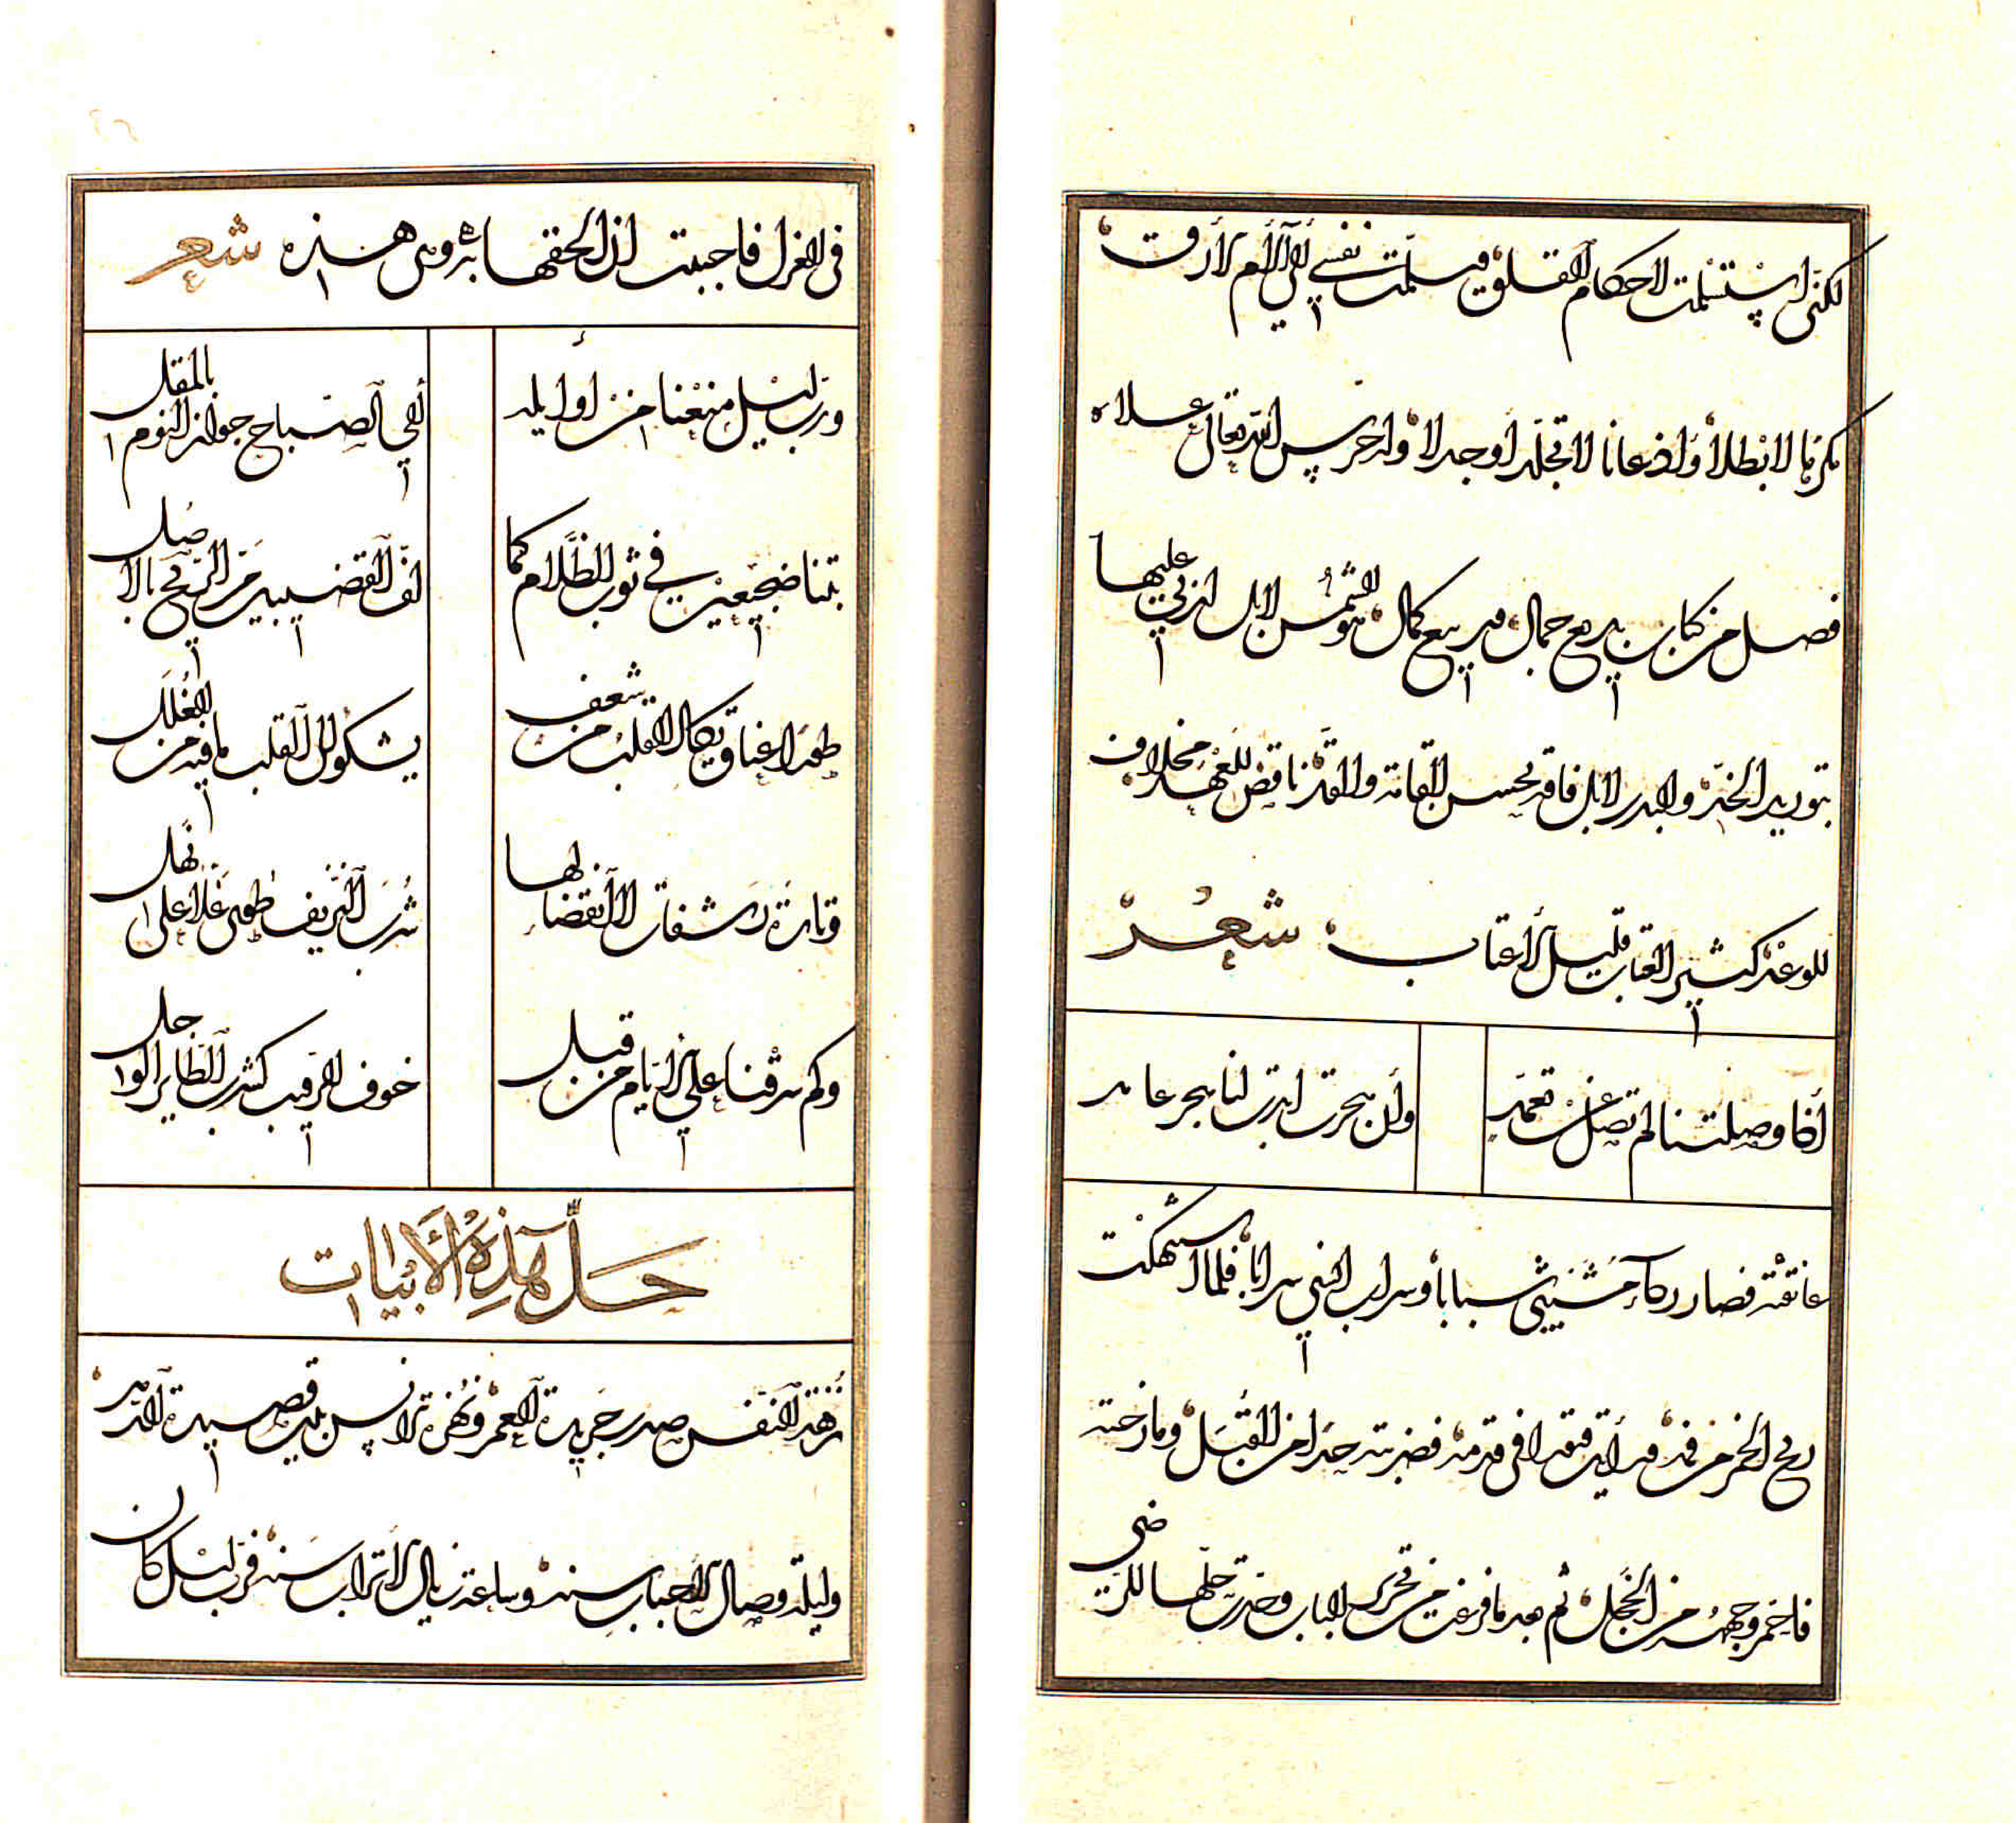 لكنى استسلمت لاحكام القلوق وسلمت نفسى الى الأم الأروق
كرها لا بطلا واذعانا لا تجلدا وجدلا واحرس الله تعالى علاه
فصل من كتاب بديع جمال وبديع كمال هو الشمس لا بل ازرى عليها
بتوريد الخد والبدر لا بل فاقه بحسن القامة والقد ناقض للعهد مخلاف
للوعد كثير العتاب قليل الأعتاب شعر
أذا وصلتنا لم تصل عن تعمد
وأن هجرت ابدت لنا هجر عامد
عانقته فصار ردآء مشيبى شبابا وسراب انسى شرابا فلما استنكهت
ريح الخمر من فمه ورأيت فتورا فى قدمه فضربته حدا من القبل ومازحته
فاحمر وجهه من الخجل ثم بعد ما فرغت من تحرير الباب وجدت حلها للرضى
فى الغزل فاحببت ان الحقها بثروى هذه شعر
ورب ليل منعنا من أوايله
الى الصباح جواز النوم بالمقل
بتنا ضجيعين في ثوب الظلام كما
لف القضيبين مر الريح بالاصل
طورا عناق كان القلب من شعف
يشكو الى القلب ما فيه من الغلل
وتارة رشفات لا انقضا لها
شرب النزيف طوى علا على نهل
وكم سرقنا على الايام من قبل
خوف الرقيب كشرب الطاير الوجل
حل هذه الأبيات
نزهة النفس صدر جريدة العمر ونهزة الانس بيت قصيدة الدهر
وليلة وصال الأحباب سنه وساعة زيال الأتراب سنة فرب ليل كان